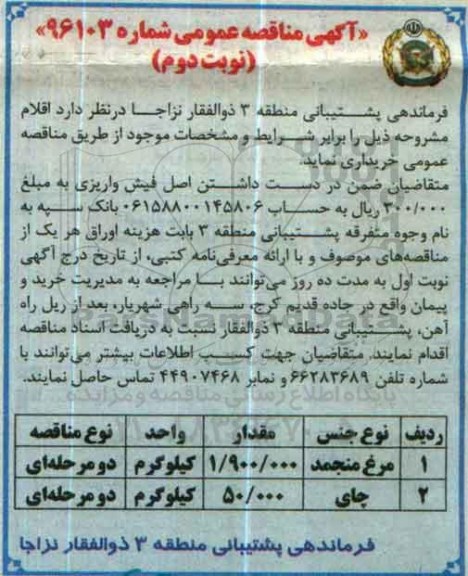 «آگهی مناقصه عمومی شماره ۹۶۱۰۳»
(نوبت دوم)
فرماندهی پشتیبانی منطقه ۳ ذوالفقار نزاجا درنظر دارد اقلام
مشروحه ذیل را برابر شرایط و مشخصات موجود از طریق مناقصه
عمومی خریداری نماید.
متقاضیان ضمن در دست داشتن اصل فیش واریزی به مبلغ
۳۰۰/۰۰۰ ریال به حساب ۰۶۱۵۸۸۰۰۱۴۵۸۰۶ بانک سپه به
نام وجوه متفرقه پشتیبانی منطقه ۳ بابت هزینه اوراق هر یک از
مناقصه‌های موصوف و با ارائه معرفی‌نامه کتبی، از تاریخ درج آگهی
نوبت اول به مدت ده روز می‌توانند با مراجعه به مدیریت خرید و
پیمان واقع در جاده قدیم کرج، سه راهی شهریار، بعد از ریل راه
آهن، پشتیبانی منطقه ۳ ذوالفقار نسبت به دریافت اسناد مناقصه
اقدام نمایند. متقاضیان جهت کسب اطلاعات بیشتر می‌توانند با
شماره تلفن ۶۶۲۸۳۶۸۹ و نمابر ۴۴۹۰۷۴۶۸ تماس حاصل نمایند.
پایگاه اطلاع رسانی مناقصه و مزایده
ردیف نوع جنس مقدار واحد نوع مناقصه
۱ مرغ منجمد ۱/۹۰۰/۰۰۰ کیلوگرم دو مرحله‌ای
۲ چای ۵۰/۰۰۰ کیلوگرم دو مرحله‌ای
فرماندهی پشتیبانی منطقه ۳ ذوالفقار نزاجا